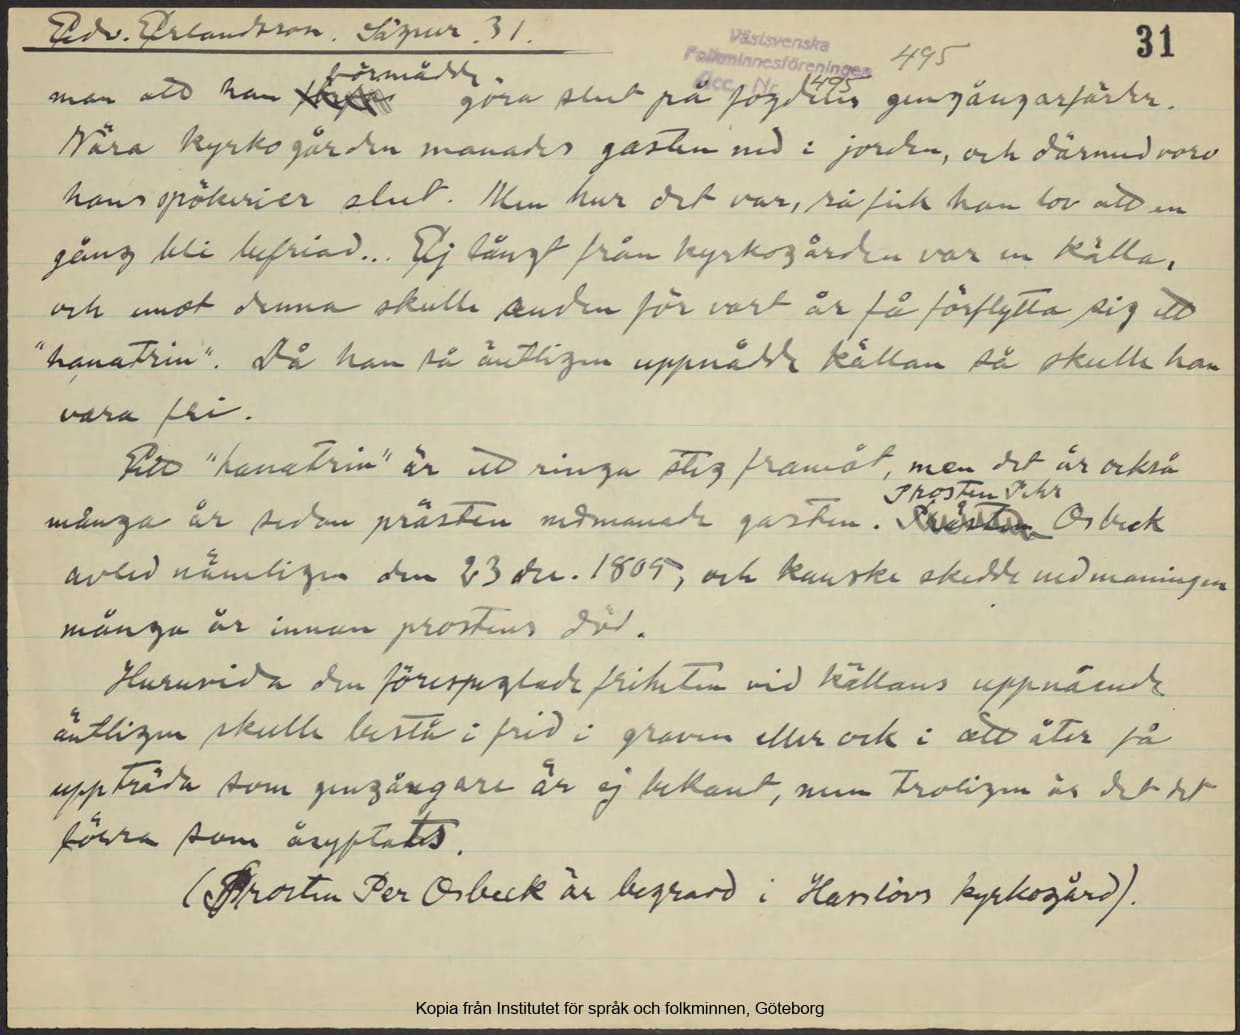 Edv. Erlandsson. Sägner. 31.
31
Västsvenska
Folkminnesföreningen
Acc. Nr. 495
495
förmådde
man att han göra slut på fogdens gengångarfärder.
Nära kyrkogården manades gasten ned i jorden, och därmed voro
hans spökerier slut. Men hur det var, så fick han lov att en
gång bli befriad... Ej långt från kyrkogården var en källa,
och emot denna skulle anden för vart år få förflytta sig ett
"hanatrin". Då han så äntligen uppnådde källan så skulle han
vara fri.
Ett "hanatrin" är ett ringa steg framåt, men det är också
Prosten Pehr
många år sedan prästen nedmanade gasten. Prästen Osbeck
avled nämligen den 23 dec. 1805, och kanske skedde nedmaningen
många år innan prostens död.
Huruvida den förespeglade friheten vid källans uppnående
äntligen skulle bestå i frid i graven eller ock i att åter få
uppträda som gengångare är ej bekant, men troligen är det det
förra som åsyftats.
(Prosten Per Osbeck är begravd i Hasslövs kyrkogård).
Kopia från Institutet för språk och folkminnen, Göteborg